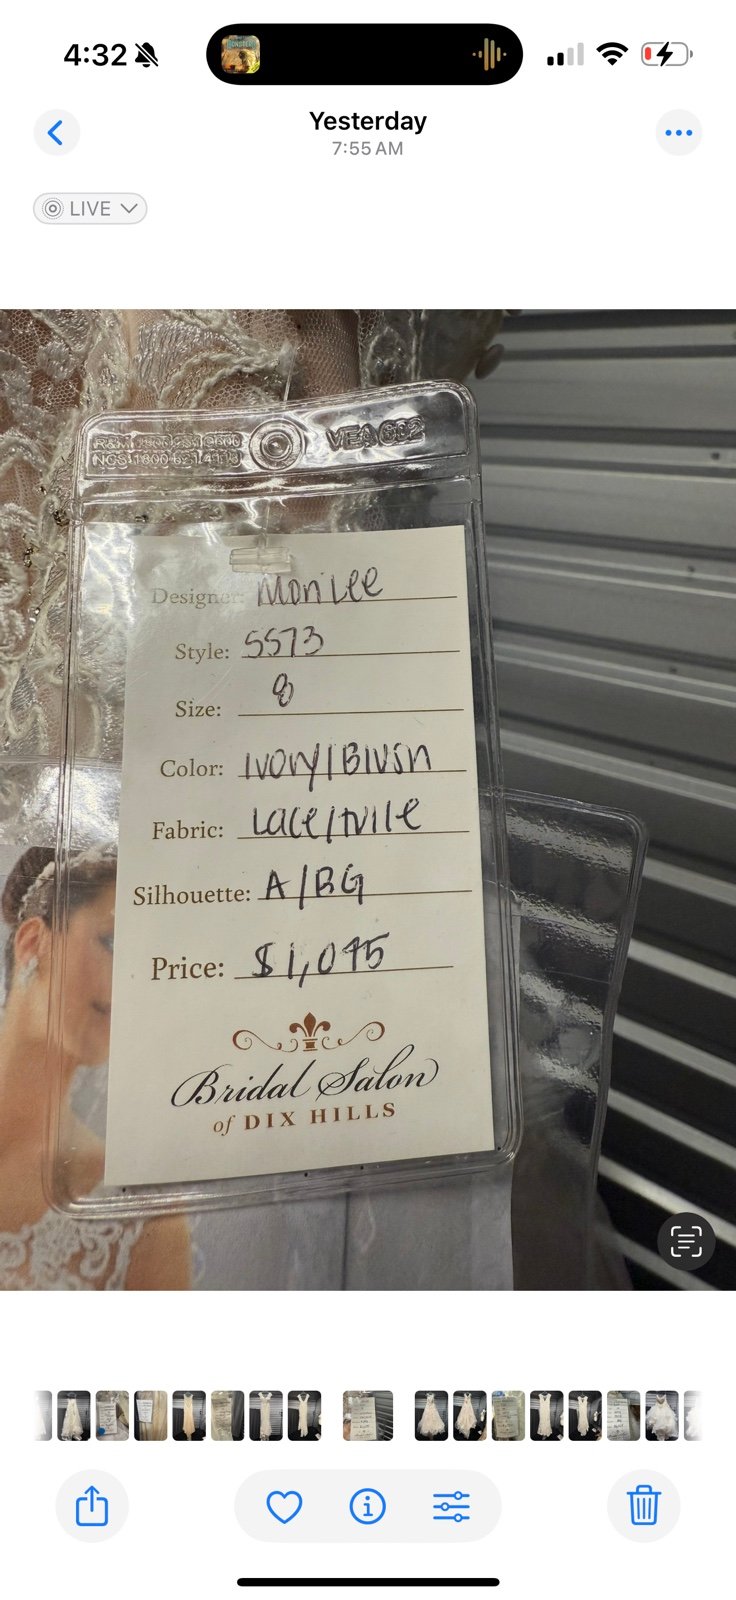 4:32
Yesterday
7:55 AM
LIVE
VEA 602
Designer: Mori Lee
Style: 5573
Size: 8
Color: Ivory/Blush
Fabric: Lace/tulle
Silhouette: A/BG
Price: $1,095
Bridal Salon
of DIX HILLS